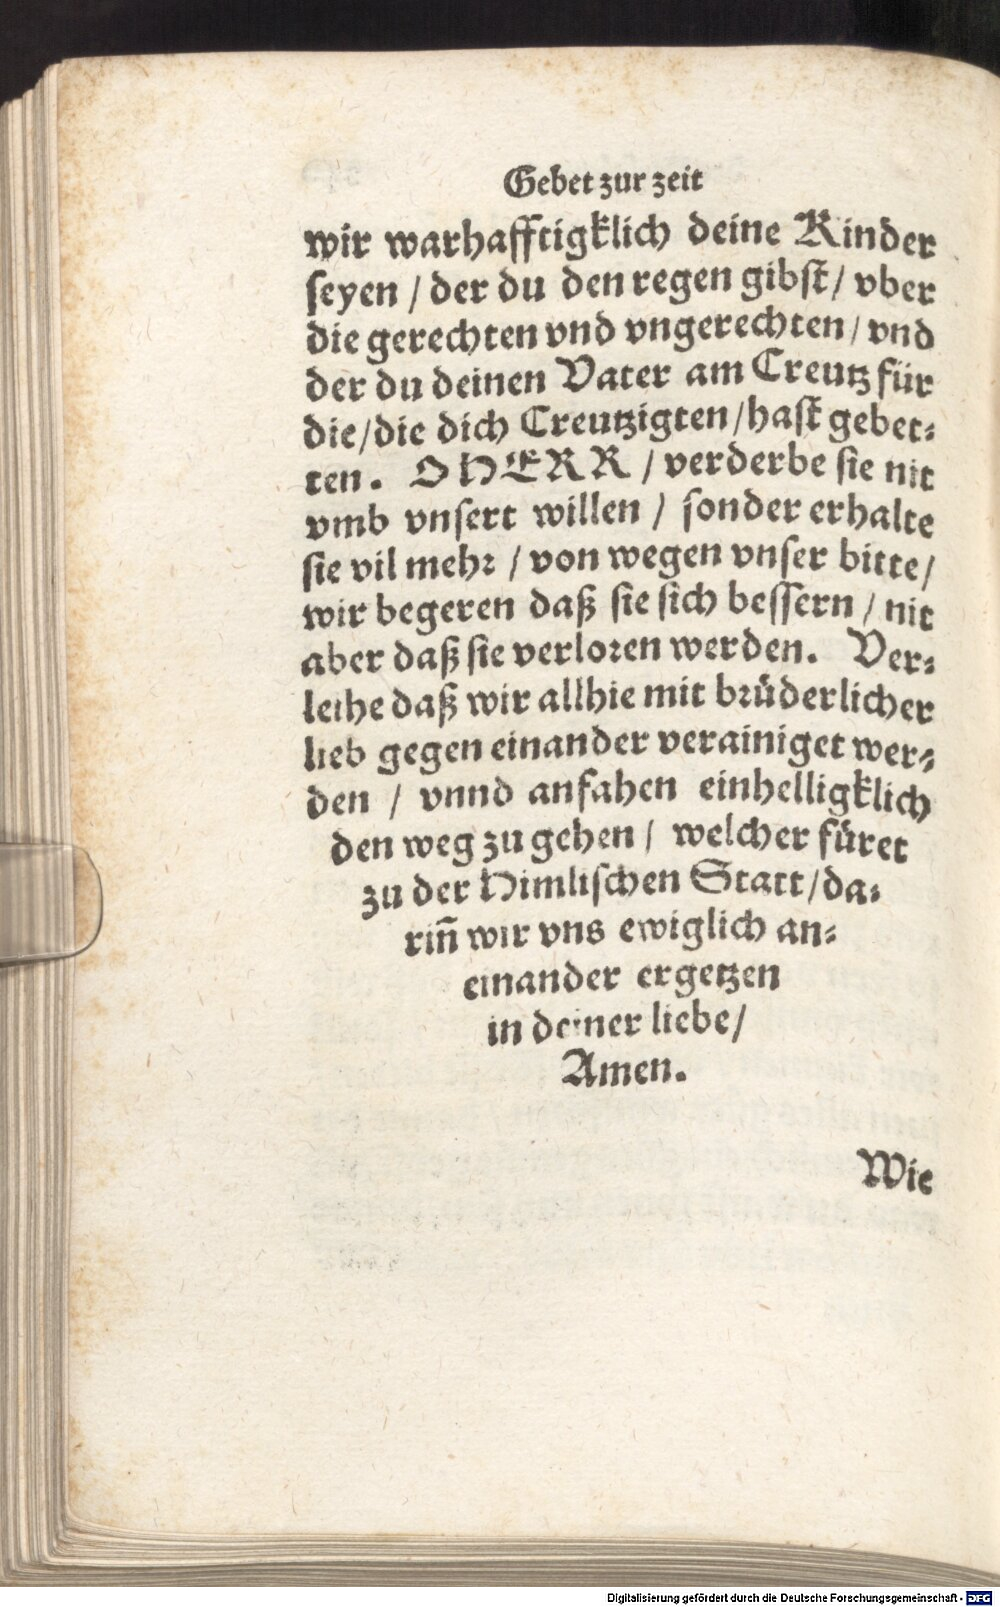 Gebet zur zeit
wir warhafftigklich deine Kinder
seyen / der du den regen gibst / vber
die gerechten vnd vngerechten / vnd
der du deinen Vater am Creutz für
die / die dich Creutzigten / hast gebet-
ten. O HERR / verderbe sie nit
vmb vnsert willen / sonder erhalte
sie vil mehr / von wegen vnser bitte /
wir begeren daß sie sich bessern / nit
aber daß sie verloren werden. Ver-
leihe daß wir allhie mit brüderlicher
lieb gegen einander verainiget wer-
den / vnnd anfahen einhelligklich
den weg zu gehen / welcher füret
zu der Himlischen Statt / da-
riñ wir vns ewiglich an-
einander ergetzen
in deiner liebe /
Amen.
Wie
Digitalisierung gefördert durch die Deutsche Forschungsgemeinschaft - DFG